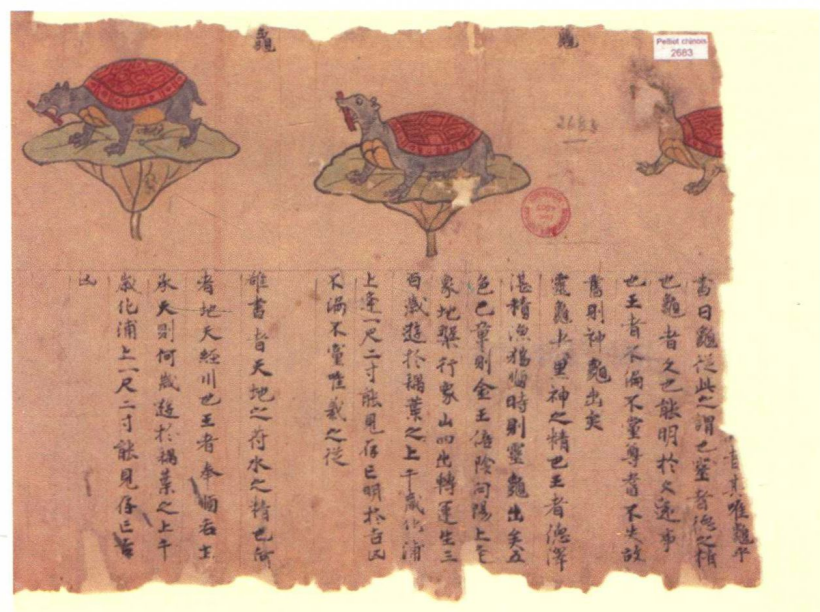 Pelliot chinois
2683
龜
龜
2683
其唯龜乎
書曰龜從此之謂也靈者德之精
也龜者久也能明於久遠事
也王者不偏不黨尊耆不失故
舊則神龜出矣
靈龜者黑神之精也王者德澤
湛積漁獵順時則靈龜出矣五
色色章則金玉倍陰向陽上
象地槃行象山四出轉運生三
百歲遊於藕葉之上千歲化浦
上一尺二寸能見存亡明於吉凶
不偏不黨唯義之從
雒書者天地之符水之精也
者地天經川也王者奉順后土
承天則何歲遊於藕葉之上千
歲化浦上一尺二寸能見存亡吉
凶